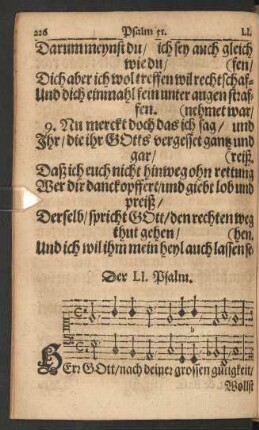 226 Psalm 51. LI.
Darum meynst du/ ich sey auch gleich
wie du/ (fen/
Dich aber ich wol treffen wil rechtschaf-
Und dich einmahl fein unter augen straf-
fen. (nehmet war/
9. Nu merckt doch das ich sag/ und
Ihr/ die ihr GOtts vergesset gantz und
gar/ (reiß.
Daß ich euch nicht hinweg ohn rettung
Wer dir danckopffert/ und giebt lob und
preiß/
Derselb/ spricht GOtt/ den rechten weg
thut gehen/ (hen.
Und ich wil ihm mein heyl auch lassen se
Der LI. Psalm.
HErr GOtt/ nach deiner grossen gütigkeit/
Wollst